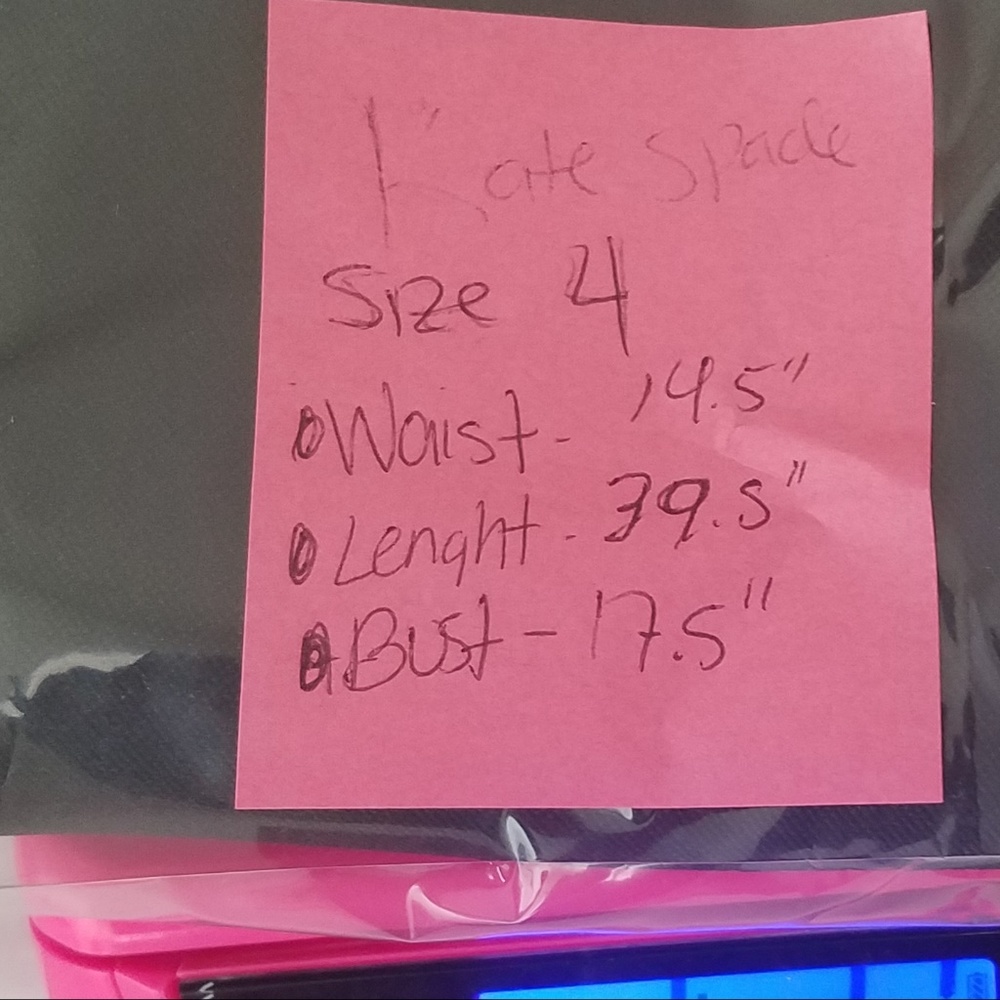 Kate Spade
Size 4
Waist - 14.5"
Lenght - 39.5"
Bust - 17.5"